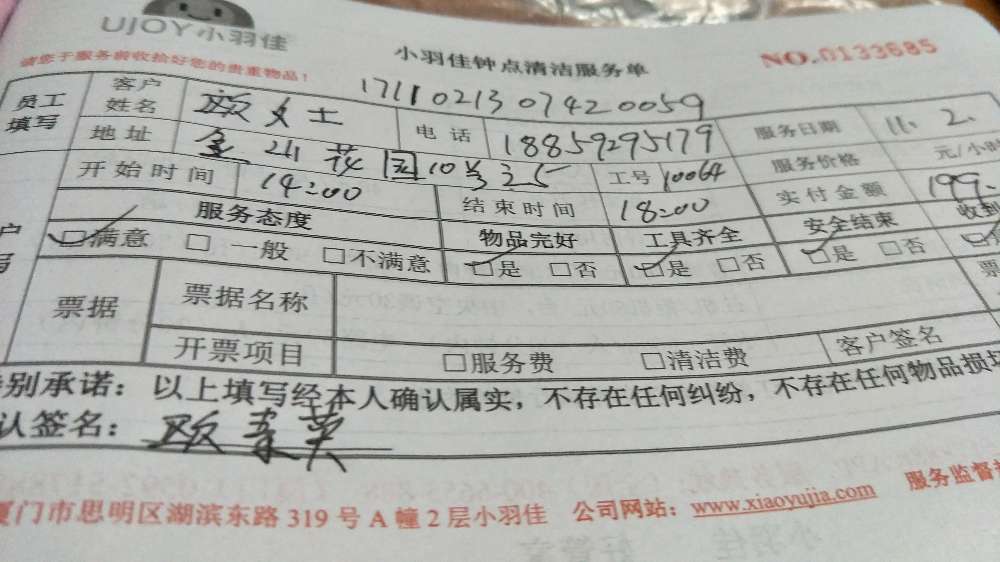 UJOY小羽佳
请您于服务前收拾好您的贵重物品!
小羽佳钟点清洁服务单
NO.0133685
1711021307420059
员工填写 客户姓名 欧女士 电话 18859295179 服务日期 11. 2.
地址 金山花园10号325 工号 10064 服务价格 元/小时
开始时间 14:00 结束时间 18:00 实付金额 199.
服务态度 物品完好 工具齐全 安全结束 收到
☑满意 □一般 □不满意 ☑是 □否 ☑是 □否 ☑是 □否
票据 票据名称
开票项目 □服务费 □清洁费 客户签名
别承诺:以上填写经本人确认属实,不存在任何纠纷,不存在任何物品损坏
认签名:欧
厦门市思明区湖滨东路 319 号 A 幢 2 层小羽佳 公司网站:www.xiaoyujia.com 服务监督